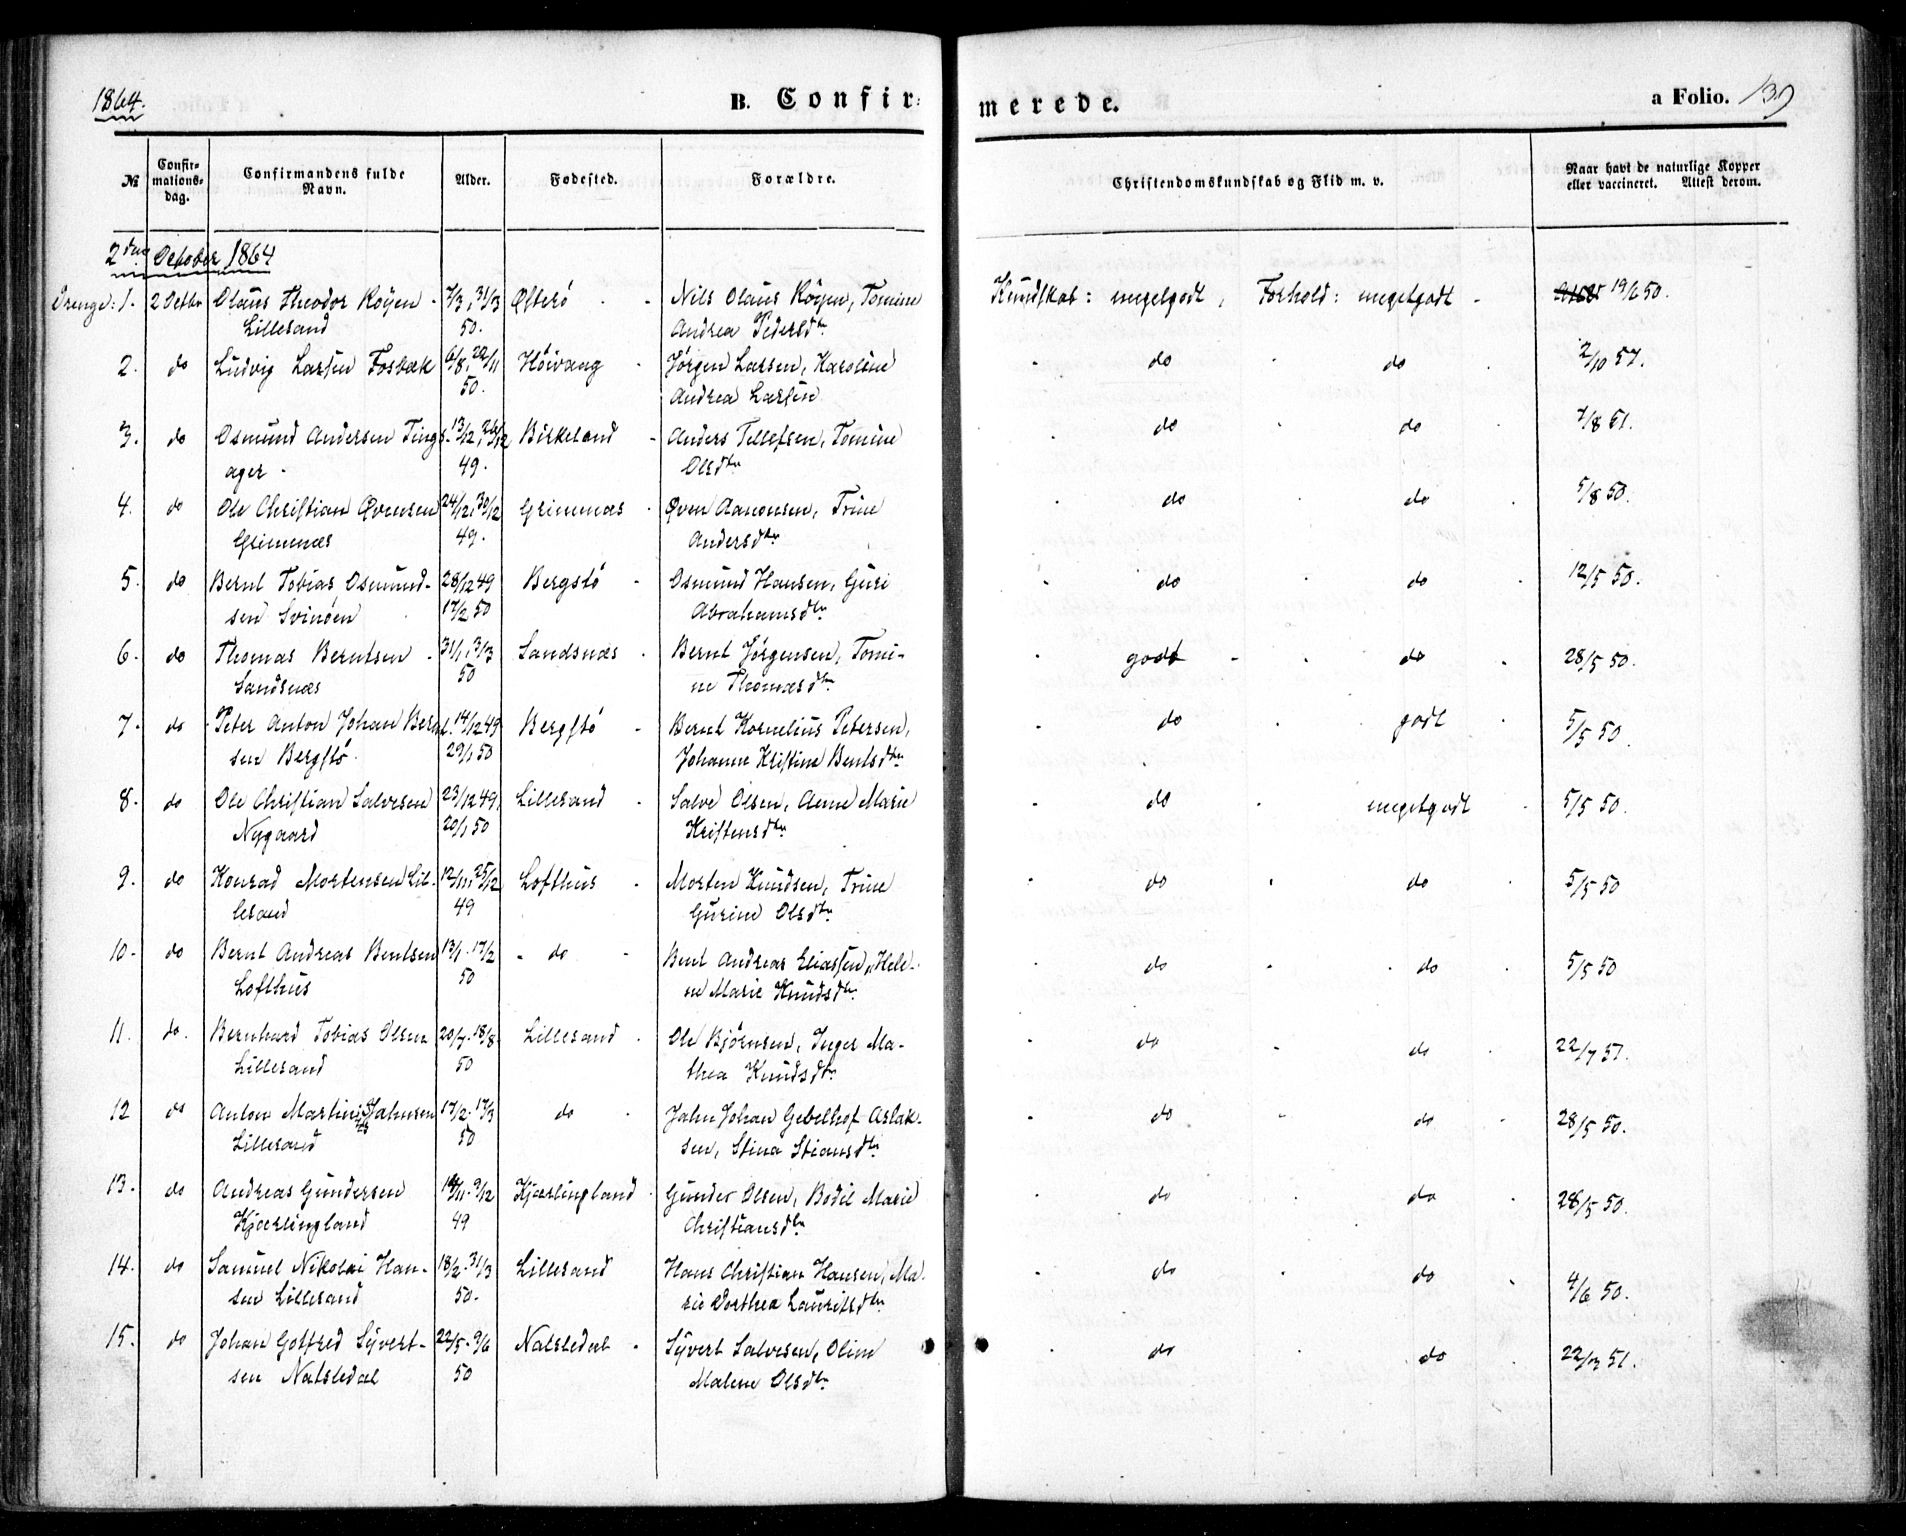 1864.
B. Confir=
merede.
a Folio. 139
№
Confir-
mations-
dag.
Confirmandens fulde
Navn.
Alder.
Fødested.
Forældre.
Christendomskundskab og Flid m. v.
Naar havt de naturlige Kopper
eller vaccineret. Attest derom.
2den October 1864
Drenge: 1. 2 Octbr Olaus Theodor Röyen 7/3, 31/3 Østerö Nils Olaus Röyen, Tomine Kundskab: megetgodt, Forhold: megetgodt 19/6 50.
Lillesand 50. Andrea Pedersdtr
2. do Ludvig Larsen Fosbæk 6/8, 24/11 Høivaag Jørgen Larsen, Karoline do do 2/10 57.
50. Andrea Larsen
3. do Osmund Andersen Ting 13/12, 26/12 Birkeland Anders Tellefsen, Tomine do do 7/8 51.
ager 49. Olsdtr
4. do Ole Christian Øvensen 24/12, 30/12 Grimenæs Øven Aanonsen, Trine do do 5/8 50.
Grimenæs 49. Andersdtr
5. do Bernt Tobias Osmund- 28/12 49 Bergstö Osmund Hansen, Guri do do 12/5 50.
sen Svinöen 17/2 50 Abrahamsdtr
6. do Thomas Berntsen 31/1, 31/3 Sandsnæs Bernt Jørgensen, Tomi- godt do 28/5 50.
Sandsnæs 50 ne Thomasdtr
7. do Peter Anton Johan Bernt- 14/12 49 Bergstö Bernt Kornelius Petersen, do godt 5/5 50.
sen Bergstö 29/1 50 Johanne Kristine Bentsdtr
8. do Ole Christian Salvesen 23/12 49, Lillesand Salve Olsen, Anne Marie do megetgodt 5/5 50.
Nygaard 20/1 50 Kristensdtr
9. do Konrad Mortensen Lil- 12/11, 25/12 Lofthus Morten Knudsen, Trine do do 5/5 50
lesand 49 Gurine Olsdtr
10. do Bernt Andreas Bentsen 13/1. 17/2 do Bent Andreas Eliassen, Hele- do do 5/5 50
Lofthus 50 ne Marie Knudsdtr
11. do. Bernhard Tobias Olsen 20/7. 18/8 Lillesand Ole Bjørnsen, Inger Ma- do do 22/7 51.
Lillesand 50 thea Knudsdtr
12 do Anton Martinius Jahnsen 17/2. 17/3 do Jahn Johan Gebelhof Aslak- do do 28/5 50.
Lillesand 50 sen, Stina Stiansdtr
13. do Andreas Gundersen 14/11. 9/12 Kjærlingland Gunder Olsen, Bodil Marie do do 28/5 50.
Kjærlingland 49 Christiansdtr
14. do Samuel Nikolai Han- 18/2. 31/3 Lillesand Hans Christian Hansen, Ma- do do 4/6 50.
sen Lillesand 50. rie Dorthea Lauritsdtr
15. do Johan Gotfred Syvert- 22/5. 9/6 Natsledal Syvert Salvesen, Oline do do 22/3 51.
sen Natsledal 50 Malene Olsdtr